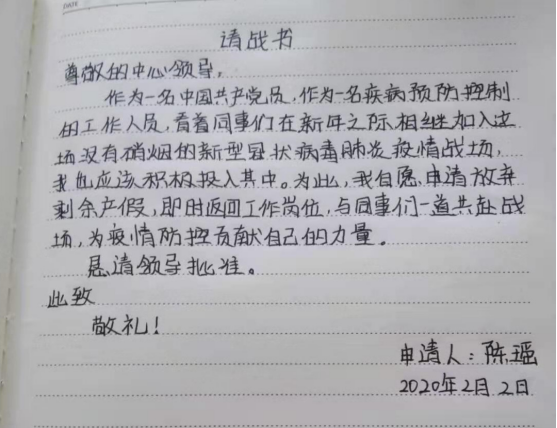 请战书
尊敬的中心领导,
作为一名中国共产党员,作为一名疾病预防控制
的工作人员,看着同事们在新年之际相继加入这
场没有硝烟的新型冠状病毒肺炎疫情战场,
我也应该积极投入其中。为此,我自愿申请放弃
剩余产假,即时返回工作岗位,与同事们一道共赴战
场,为疫情防控贡献自己的力量。
恳请领导批准。
此致
敬礼!
申请人:陈瑶
2020年2月2日